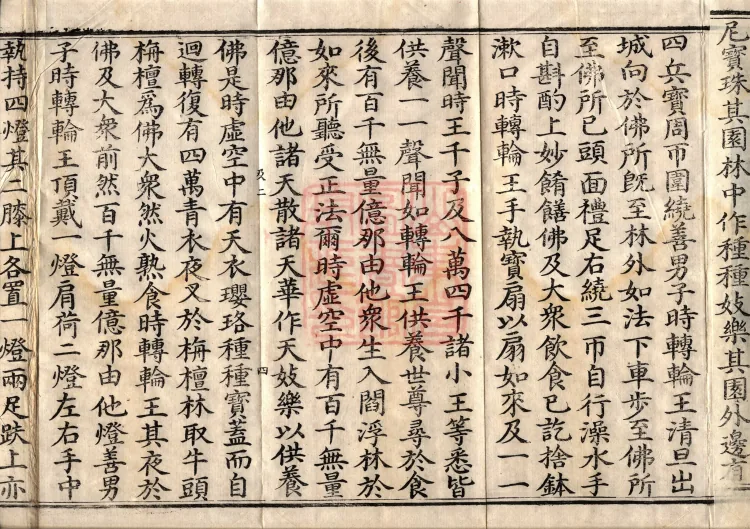 尼寶珠其園林中作種種妓樂其園外邊有
四兵寶周帀圍繞善男子時轉輪王清旦出
城向於佛所旣至林外如法下車步至佛所
至佛所已頭面禮足右繞三帀自行澡水手
自斟酌上妙餚饍佛及大衆飲食已訖捨鉢
漱口時轉輪王手執寶扇以扇如來及一一
聲聞時王千子及八萬四千諸小王等悉皆
供養一一聲聞如轉輪王供養世尊尋於食
後有百千無量億那由他衆生入閻浮林於
如來所聽受正法爾時虛空中有百千無量
億那由他諸天散諸天華作天妓樂以供養
及二 四
佛是時虛空中有天衣瓔珞種種寶蓋而自
迴轉復有四萬青衣夜叉於栴檀林取牛頭
栴檀爲佛大衆然火熟食時轉輪王其夜於
佛及大衆前然百千無量億那由他燈善男
子時轉輪王頂戴一燈肩荷二燈左右手中
執持四燈其二膝上各置一燈兩足趺上亦